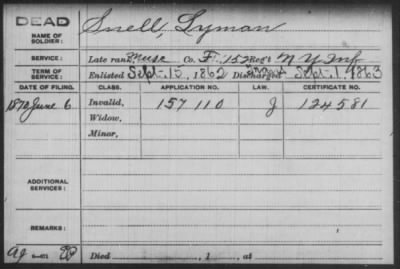 DEAD
NAME OF SOLDIER: Snell, Lyman
SERVICE: Late rank Musc Co. F, 152 Reg't N Y Inf
TERM OF SERVICE: Enlisted Sept. 15, 1862 Discharged Sept. 1, 1863
DATE OF FILING. CLASS. APPLICATION NO. LAW. CERTIFICATE NO.
1870 June 6 Invalid, 157110 124581
Widow,
Minor,
ADDITIONAL SERVICES:
REMARKS:
Died , 1 , at